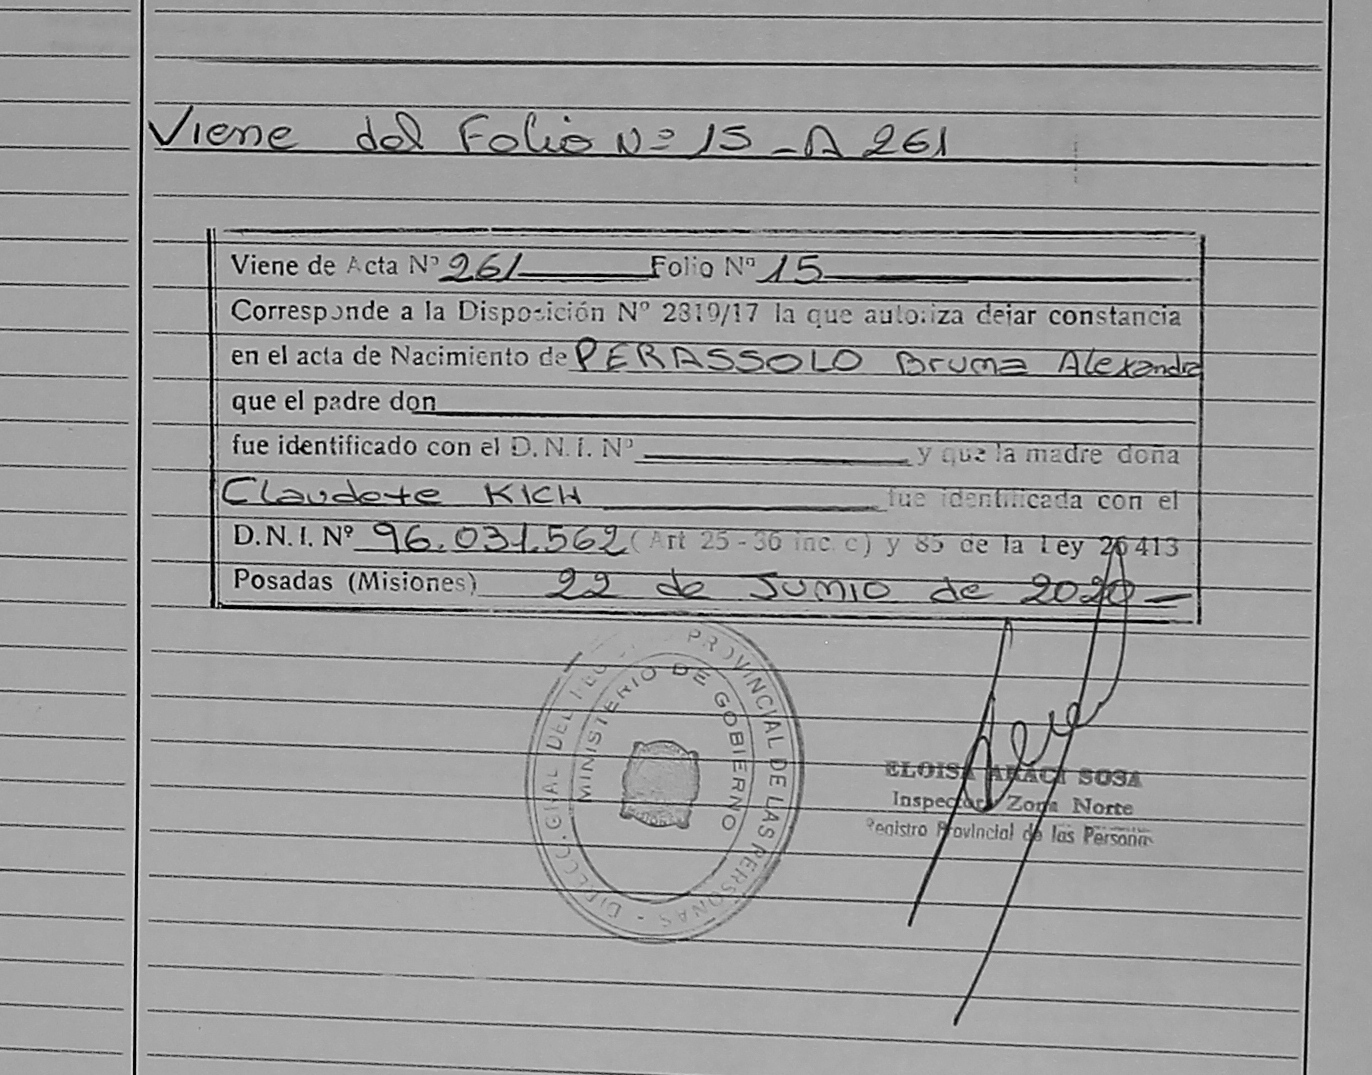 Viene del Folio Nº 15 - A 261
Viene de Acta Nº 261 Folio Nº 15
Corresponde a la Disposición Nº 2319/17 la que autoriza dejar constancia
en el acta de Nacimiento de PERASSOLO Bruna Alexandra
que el padre don
fue identificado con el D. N. I. Nº y que la madre doña
Claudete KICH fue identificada con el
D.N.I. Nº 96.031.562 (Art 25 - 36 inc. c) y 85 de la Ley 26413
Posadas (Misiones) 22 de Junio de 2020 -
DIRECC. GRAL DEL PROVINCIAL DE LAS PERSONAS -
MINISTERIO DE GOBIERNO
ELOISA ARACI SOSA
Inspectora Zona Norte
Registro Provincial de las Personas